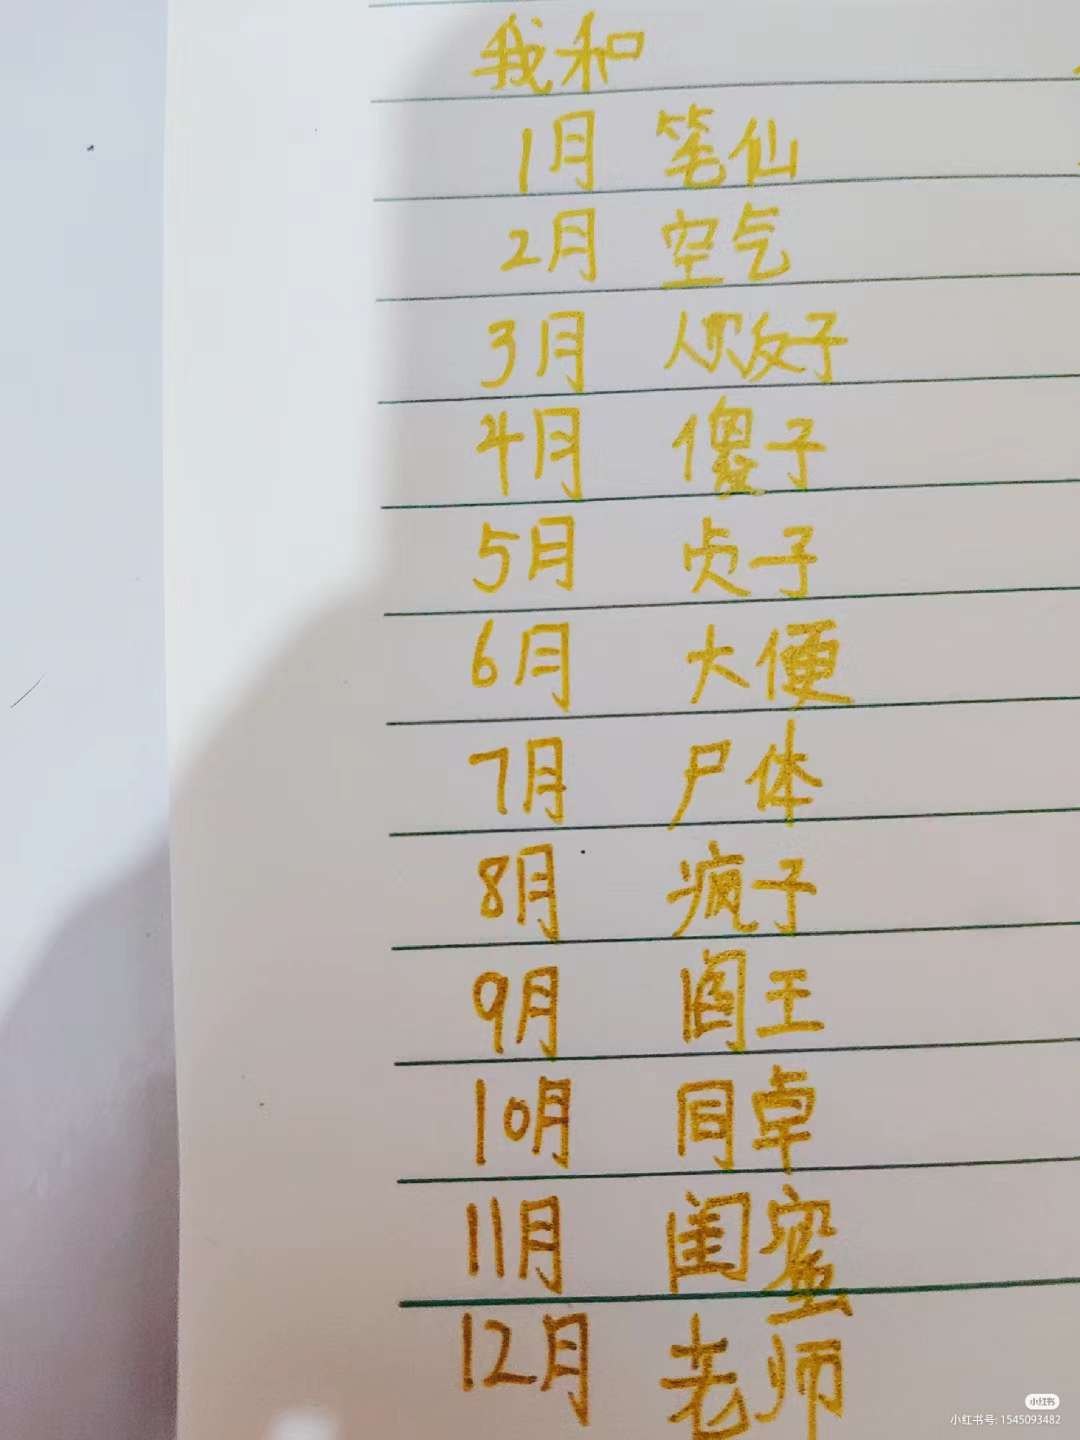 我和
1月 笔仙
2月 空气
3月 人贩子
4月 傻子
5月 贞子
6月 大便
7月 尸体
8月 疯子
9月 阎王
10月 同卓
11月 闺蜜
12月 老师
小红书
小红书号: 1545093482